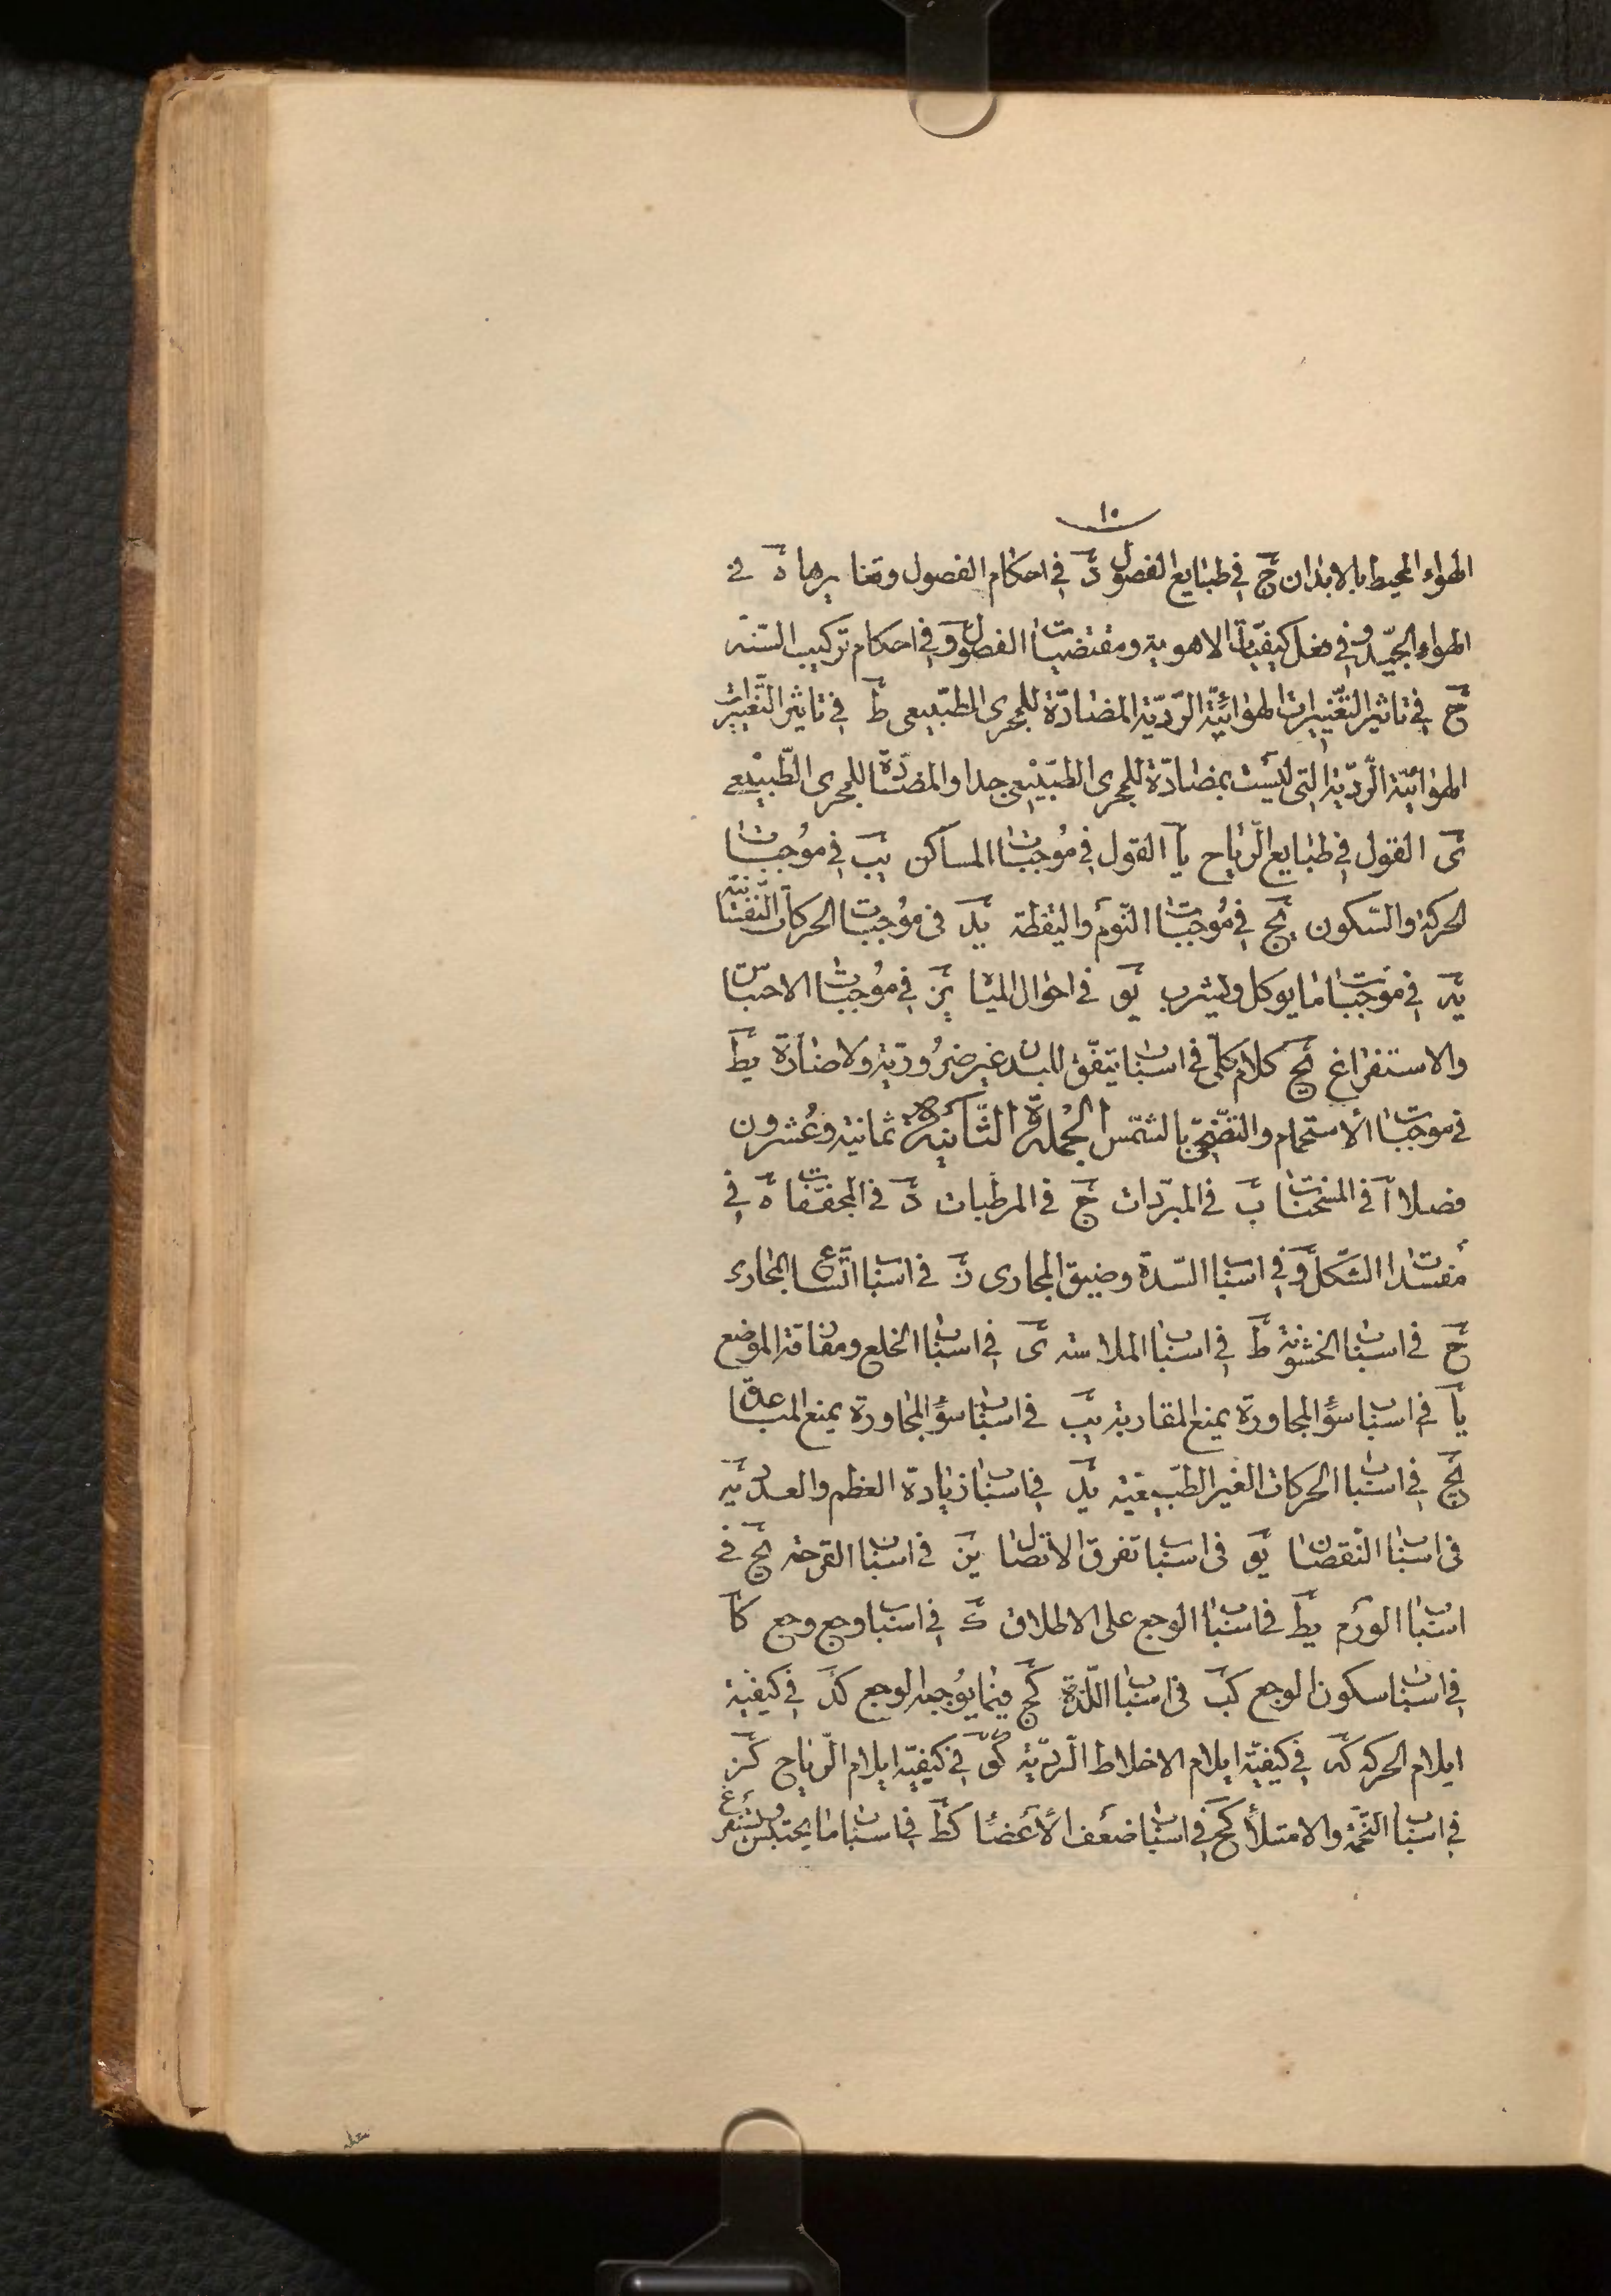 ١٠
الهواء المحيط بالابدان ج في طبايع الفصول د في احكام الفصول وتغايرها ه في
الهواء الجيّد و في فعل كيفيّات الاهوية ومقتضيات الفصول و في احكام تركيب السّنة
ح في تاثير التّغييرات الهوائيّة الرّديّة المضادّة للمجرى الطبّيعى ط في تاثير التّغييرات
الهوائيّة الرّديّة التى ليست بمضادّة للمجرى الطبّيعى جدا والمضادّة للمجرى الطّبيعى
ى القول في طبايع الرّياح يا القول في مُوجبات المساكن يب في موُجبات
الحركة والسّكون يج في مُوجبات النّوم واليقظة يد في موُجبات الحركات النّفسانيّة
يه في موجبات ما يوكل ويشرب يو في احوال المياه يز في موُجبات الاحتباس
والاستفراغ يح كلام كلّى في اسباب يتفّق للبدن غير ضرُوريّة ولا ضارّة يط
في موجبات الأستحمام والتّضحّى بالشّمس الجُملة الثّانية ثمانية وعُشرون
فصلا ا في المسخنات ب في المبرّدات ج في المرطبات د في المجفّفات ه في
مُفسدات الشّكل و في اسباب السّدة وضيق المجارى ز في اسباب اتّساع المجارى
ح في اسباب الخشونة ط في اسباب الملاسة ى في اسباب الخلع ومفارقة الموضع
يا في اسباب سوُ المجاورة يمنع المقاربة يب في اسباب سوُ المجاورة يمنع المباعدة
يج في اسباب الحركات الغير الطّبيعيّة يد في اسباب زيادة العظم والعدد يه
في اسباب النّقصان يو في اسباب تفرق الاتصال يز في اسباب القرحة يح في
اسباب الورم يط في اسباب الوجع على الاطلاق ك في اسباب وجع وجع كا
في اسباب سكون الوجع كب في اسباب اللّذة كج فيما يوُجبه الوجع كد في كيفية
ايلام الحركه كه في كيفيّة ايلام الاخلاط الرّديّة كو في كيفيّة ايلام الرّياح كز
في اسباب التّخمة والامتلأ كح في اسباب ضعف الأعضا كط في اسباب ما يحتبس ويستفرغ